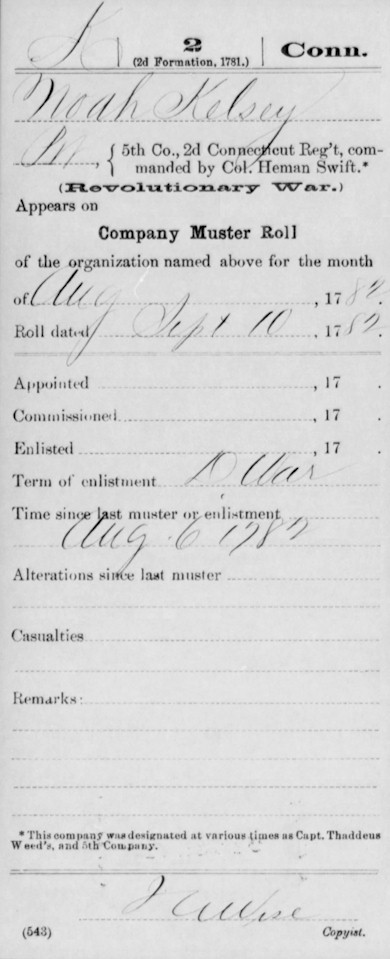 K | 2 | Conn.
(2d Formation, 1781.)
Noah Kelsey
Pvt, { 5th Co., 2d Connecticut Reg't, com-
manded by Col. Heman Swift.*
(Revolutionary War.)
Appears on
Company Muster Roll
of the organization named above for the month
of Aug , 1782.
Roll dated Sept 10 , 1782.
Appointed , 17 .
Commissioned , 17 .
Enlisted , 17 .
Term of enlistment D War
Time since last muster or enlistment
Aug 6 1782
Alterations since last muster
Casualties
Remarks:
* This company was designated at various times as Capt. Thaddeus
Weed's, and 5th Company.
(543) Copyist.